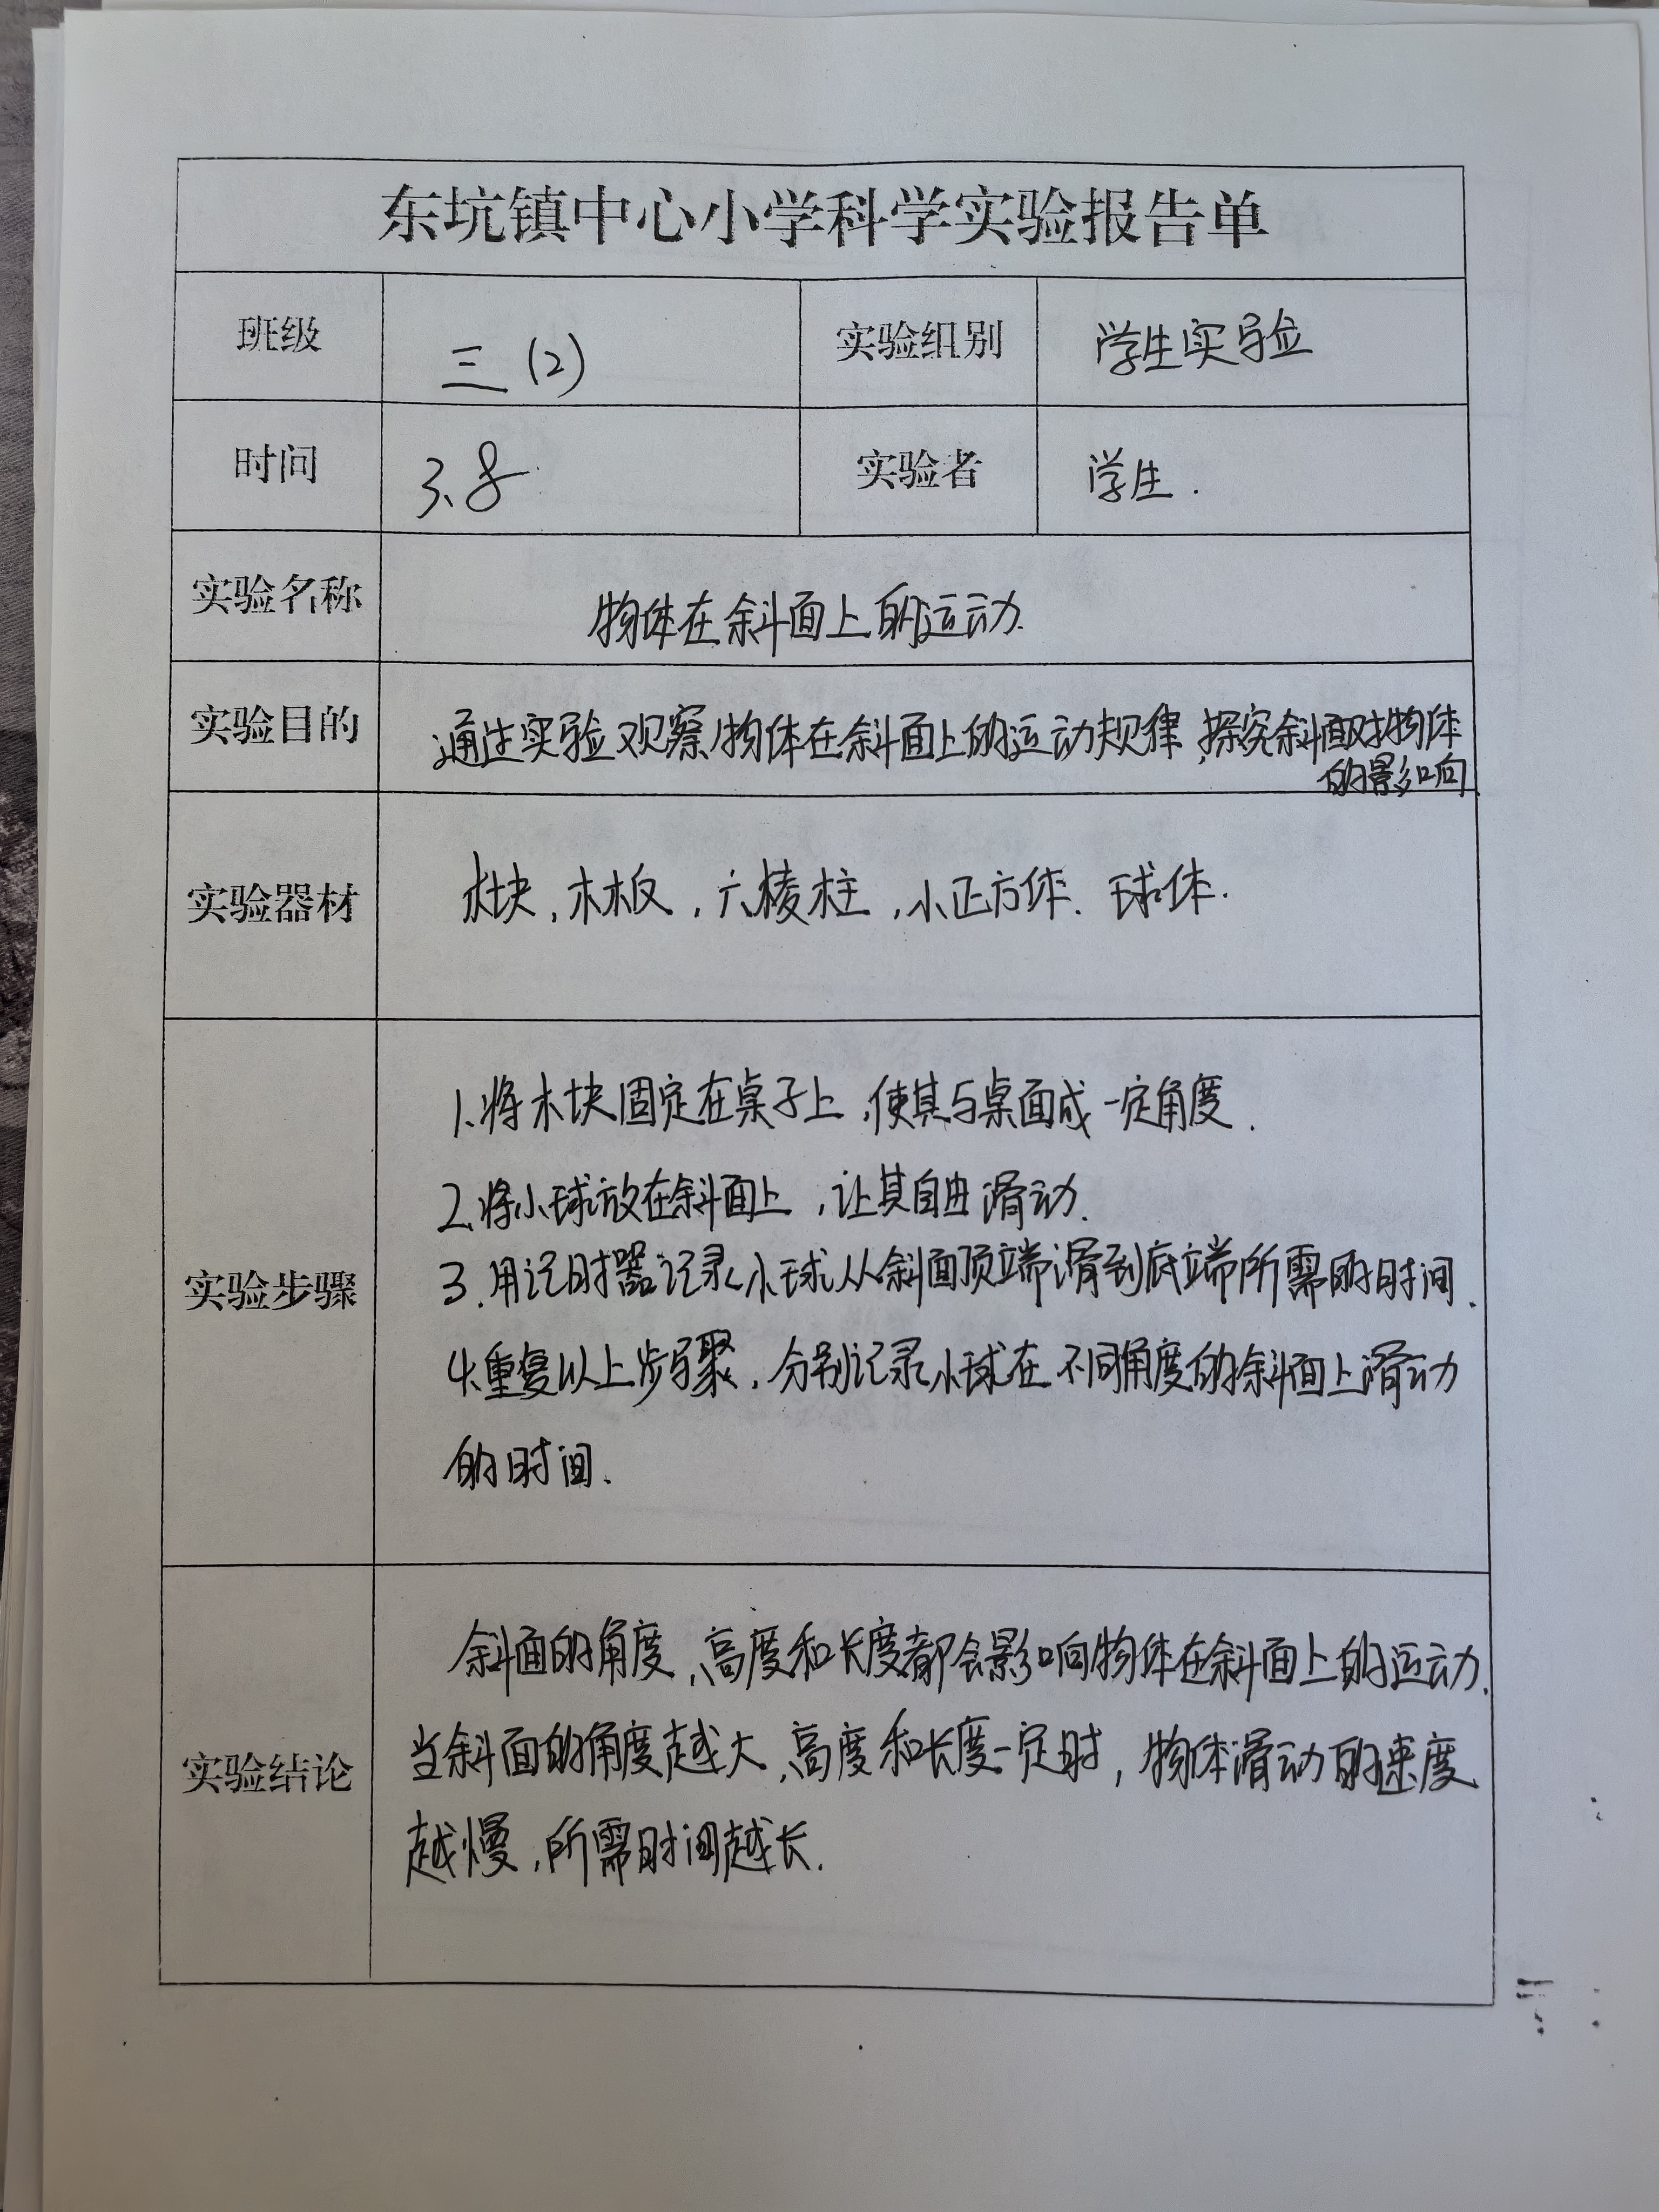 东坑镇中心小学科学实验报告单
班级 三(2) 实验组别 学生实验
时间 3.8 实验者 学生.
实验名称 物体在斜面上的运动.
实验目的 通过实验观察物体在斜面上的运动规律,探究斜面对物体
的影响
实验器材 木块,木板,六棱柱,小正方体、球体.
1.将木块固定在桌子上,使其与桌面成一定角度.
2.将小球放在斜面上,让其自由滑动.
实验步骤 3.用记时器记录小球从斜面顶端滑到底端所需的时间.
4.重复以上步骤,分别记录小球在不同角度的斜面上滑动
的时间.
斜面的角度、高度和长度都会影响物体在斜面上的运动.
实验结论 当斜面的角度越大、高度和长度一定时,物体滑动的速度
越慢,所需时间越长.